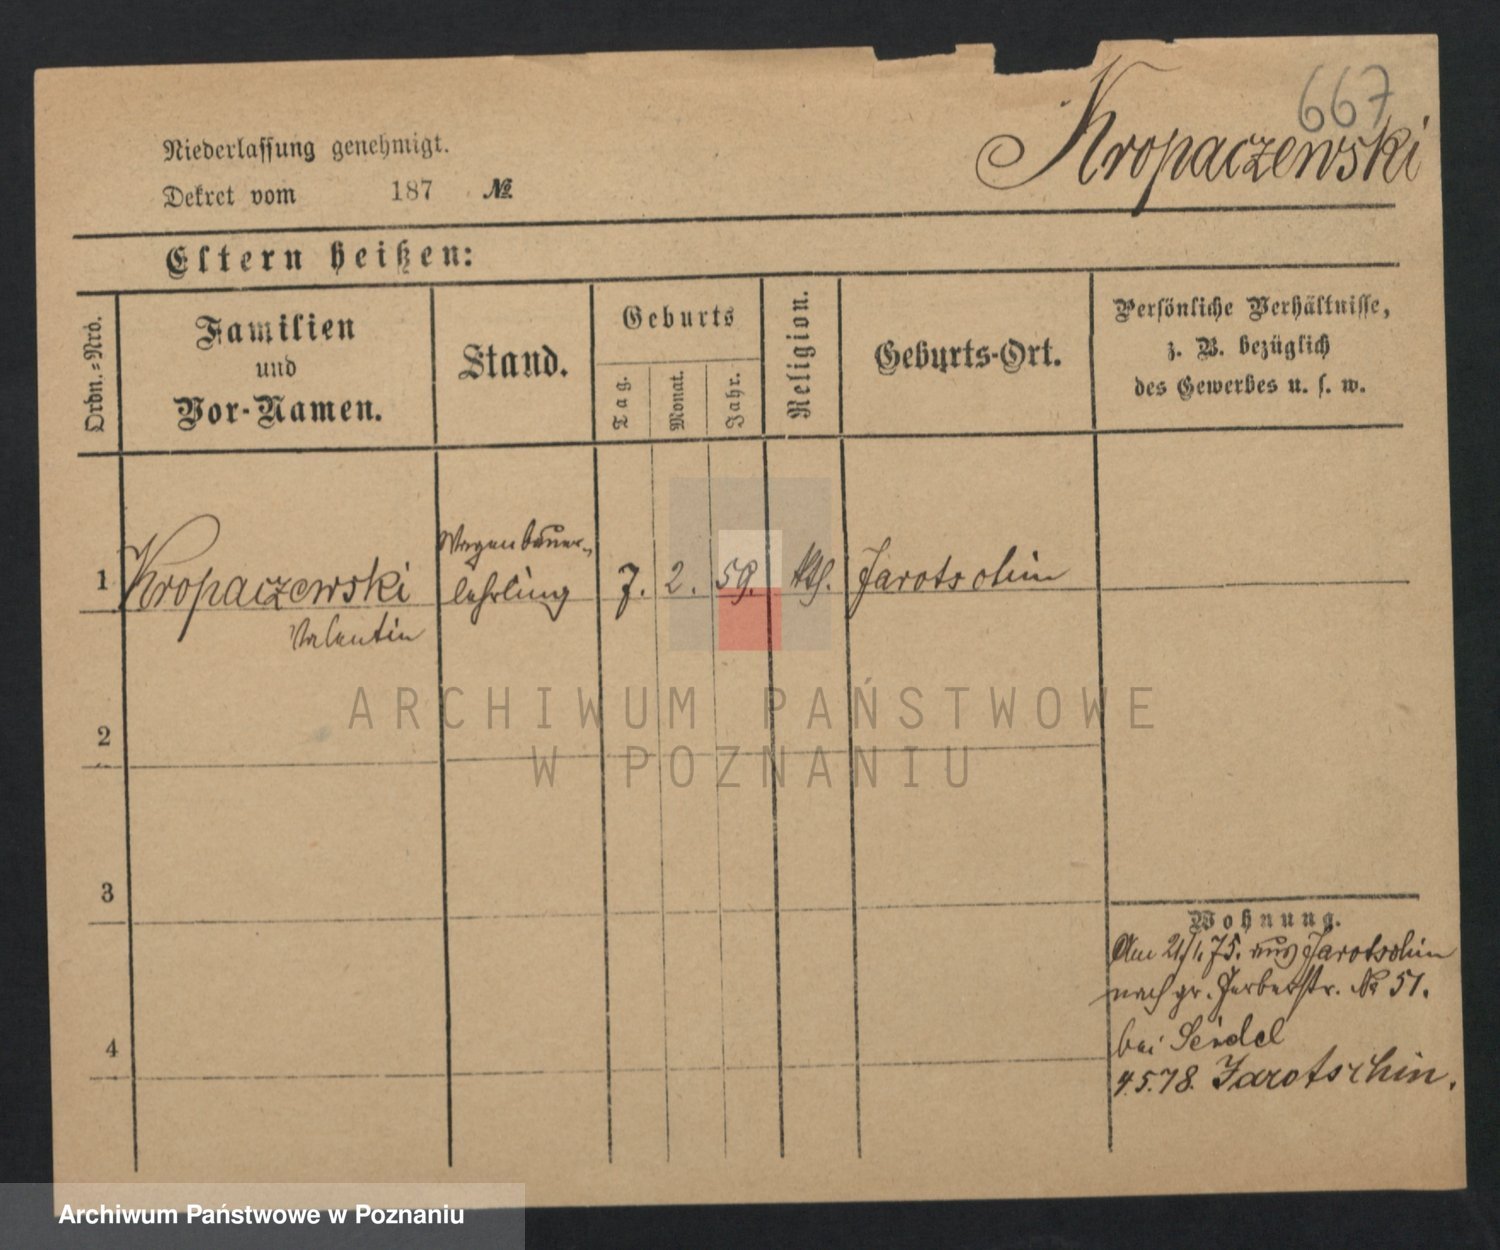 667
Kropaczewski
Niederlassung genehmigt.
Dekret vom 187 №
Eltern heißen:
Ordn.-Nro.
Familien
und
Vor-Namen.
Stand.
Geburts
Tag.
Monat.
Jahr.
Religion.
Geburts-Ort.
Persönliche Verhältnisse,
z. B. bezüglich
des Gewerbes u. s. w.
Wagenbauer-
1 Kropaczewski lehrling 7. 2. 59. kth. Jarotschin
Valentin
2
3
4
Wohnung.
Am 21/1 75. aus Jarotschin
nach gr. Gerberstr. № 51.
bei Seidel
4.5.78. Jarotschin.
ARCHIWUM PAŃSTWOWE
W POZNANIU
Archiwum Państwowe w Poznaniu